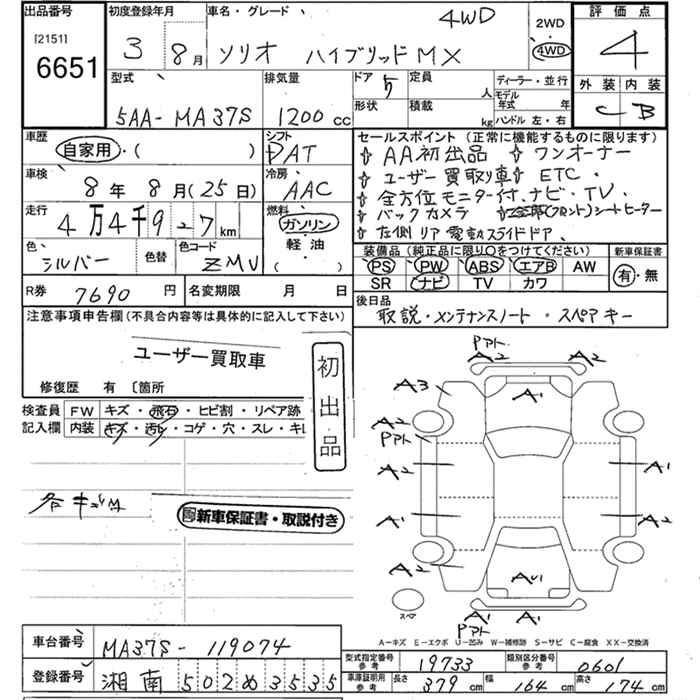 出品番号
[2151]
6651
初度登録年月
3 8月
車名・グレード
4WD
ソリオ ハイブリッドMX
2WD
4WD
評価点
4
外装 内装
C B
型式
5AA-MA37S
排気量
1200 cc
ドア
5
形状
定員
人
積載
kg
ディーラー・並行
モデル
年式 年
ハンドル 左・右
車歴
自家用・( )
シフト
AT
車検
8年 8月(25日)
冷房
AAC
走行
4万4千9 2 7 km
燃料
ガソリン
軽油
( )
色
シルバー
色替
色コード
ZMU
R券
7690 円
名変期限 月 日
セールスポイント (正常に機能するものに限ります)
AA初出品 ワンオーナー
ユーザー買取り車 ETC・
全方位モニター付ナビ・TV・
バックカメラ (フロント)シートヒーター
左側リア電動スライドドア、
装備品(純正品に限り○をつけてください)
PS PW ABS エアB AW
SR ナビ TV カワ
新車保証書
有・無
後日品
取説・メンテナンスノート・スペアキー
注意事項申告欄(不具合内容等は具体的に記入して下さい)
ユーザー買取車
修復歴 有 〔箇所
初出品
検査員
記入欄
FW キズ・飛石・ヒビ割・リペア跡
内装 キズ・汚レ・コゲ・穴・スレ・キレ
各キズM
新車保証書・取説付き
P.アト
A2 A2
A3
A1
A2
P.アト
A2 A1
A1 A2
A2
AU1
A1 A1
P.アト
スペア
A−キズ E−エクボ U−凹み W−補修跡 S−サビ C−腐食 XX−交換済
車台番号
MA37S-119074
登録番号
湘南 502め3535
型式指定番号
参考
19733
類別区分番号
参考
0601
車庫証明用
参考
長さ 379 cm 幅 164 cm 高さ 174 cm